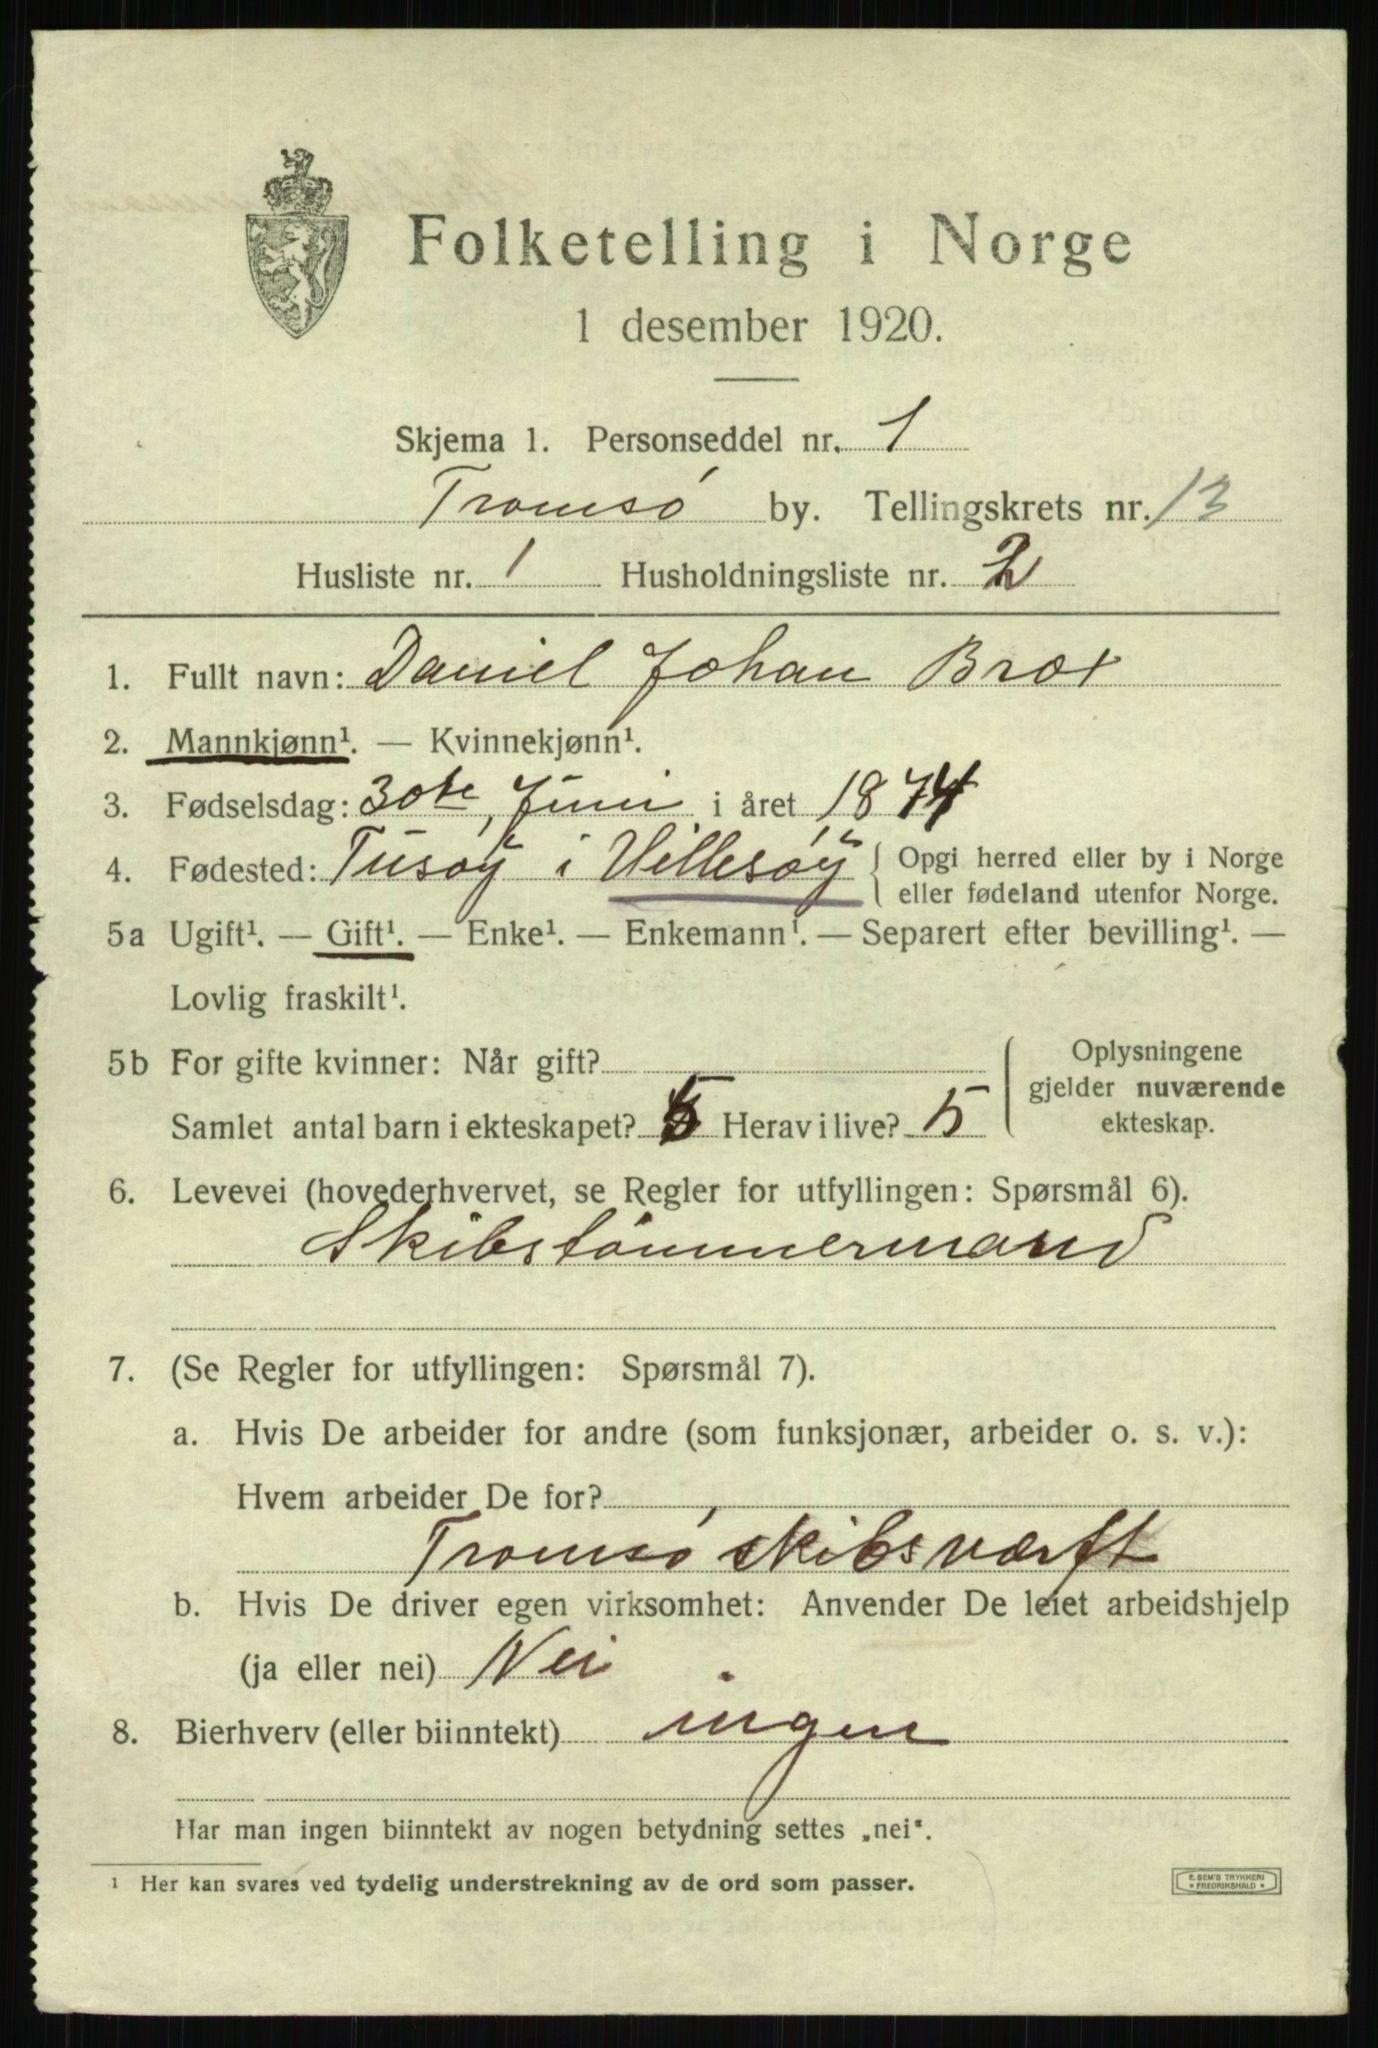 Folketelling i Norge
1 desember 1920.
Skjema 1. Personseddel nr. 1
Tromsó by. Tellingskrets nr. 13
Husliste nr. 1 Husholdningsliste nr. 2
1. Fullt navn: Daniel Johan Brox
2. Mannkjønn¹. — Kvinnekjønn¹.
3. Fødselsdag: 30te Juni i året 1874
4. Fødested: Tusøy i Hillesøy { Opgi herred eller by i Norge
eller fødeland utenfor Norge.
5a Ugift¹. — Gift¹. — Enke¹. — Enkemann¹. — Separert efter bevilling¹. —
Lovlig fraskilt¹.
5b For gifte kvinner: Når gift?
Samlet antal barn i ekteskapet? 5 Herav i live? 5
Oplysningene
gjelder nuværende
ekteskap.
6. Levevei (hovederhvervet, se Regler for utfyllingen: Spørsmål 6).
Skibstömmermand
7. (Se Regler for utfyllingen: Spørsmål 7).
a. Hvis De arbeider for andre (som funksjonær, arbeider o. s. v.):
Hvem arbeider De for?
Tromsó skibsværft
b. Hvis De driver egen virksomhet: Anvender De leiet arbeidshjelp
(ja eller nei) Nei
8. Bierhverv (eller biinntekt) ingen
Har man ingen biinntekt av nogen betydning settes „nei“.
¹ Her kan svares ved tydelig understrekning av de ord som passer.
E. SEM'S TRYKKERI
* FREDRIKSHALD *